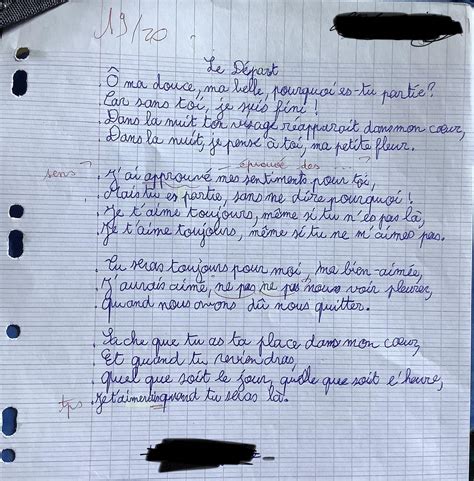 19/20
Le Départ
Ô ma douce, ma belle, pourquoi es-tu partie?
Car sans toi, je suis fini!
Dans la nuit ton visage réapparait dans mon cœur,
Dans la nuit, je pense à toi, ma petite fleur.
éprouvé des
sens?
J'ai approuvé mes sentiments pour toi,
Mais tu es partie, sans me dire pourquoi!
Je t'aime toujours, même si tu n'es pas là,
Je t'aime toujours, même si tu ne m'aimes pas.
Tu seras toujours pour moi, ma bien-aimée,
J'aurais aimé ne pas ne pas nous voir pleurer,
Quand nous avons dû nous quitter.
Sache que tu as ta place dans mon cœur,
Et quand tu reviendras,
Quel que soit le jour, quelle que soit l'heure,
tps Je t'aimerai quand tu seras là.